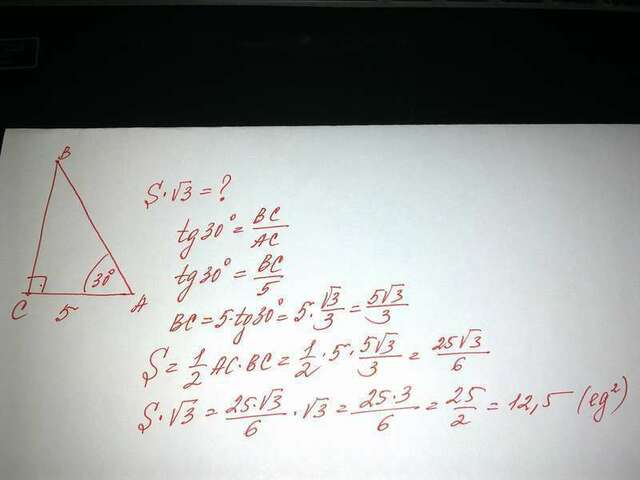 B
S·√3 = ?
tg30° = BC/AC
tg30° = BC/5
30°
C 5 A
BC = 5·tg30° = 5·√3/3 = 5√3/3
S = 1/2 AC·BC = 1/2·5·5√3/3 = 25√3/6
S·√3 = 25·√3/6·√3 = 25·3/6 = 25/2 = 12,5 (eg²)